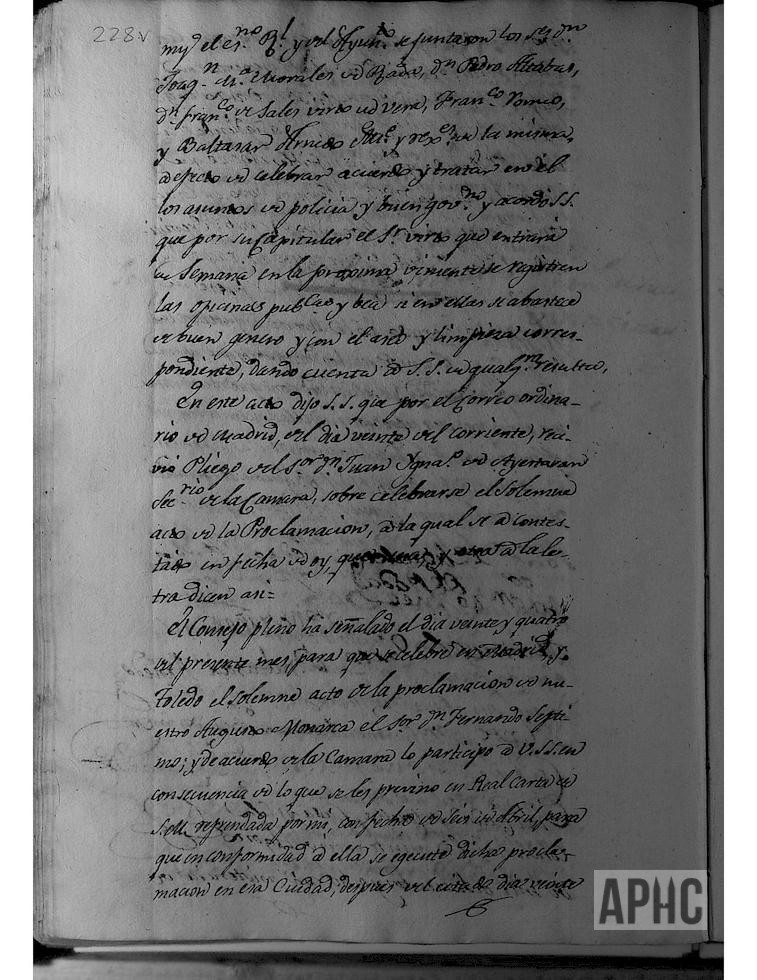 228v
my el es.no R.l y del Ayun.to se juntaron los Ses. Dn.
Joaq.n M.a Morales de Rada, Dn. Pedro
Dn. Fran.co de Sales vera, Fran.co
y Baltasar de la misma,
a efecto de celebrar acuerdo y tratar en el
los asuntos de policia y buen gov.no y acordó S.S.
que por su Capitular el S.r que entrará
de Semana en la proxima viniente se registren
las oficinas pub.cas y vea si en ellas se abastece
de buen genero y con el aseo y limpieza corres-
pondiente, dando cuenta a S.S. de qualq.ra resulta,
En este acto dijo S.S. que por el Correo ordina-
rio de Madrid, del dia veinte del corriente, reci-
vió Pliego del S.or Dn. Juan Ygna.o de Ayestaran
Sec.rio de la Camara, sobre celebrarse el Solemne
acto de la Proclamacion, a la qual se a contes-
tado en fecha de oy, que y otra a la le-
tra dicen asi=
El Consejo pleno ha señalado el dia veinte y quatro
del presente mes, para que se celebre en Madrid y
Toledo el Solemne acto de la proclamacion de nu-
estro Augusto Monarca el Sor. Dn. Fernando Septi-
mo; y de acuerdo de la Camara lo participo a V.SS. en
consecuencia de lo que se les previno en Real Carta de
S.M. refrendada por mi, con fecha de seis de Abril, para
que en conformidad a ella se egecute dicha procla-
macion en esa Ciudad, despues del citado dia veinte
APHC